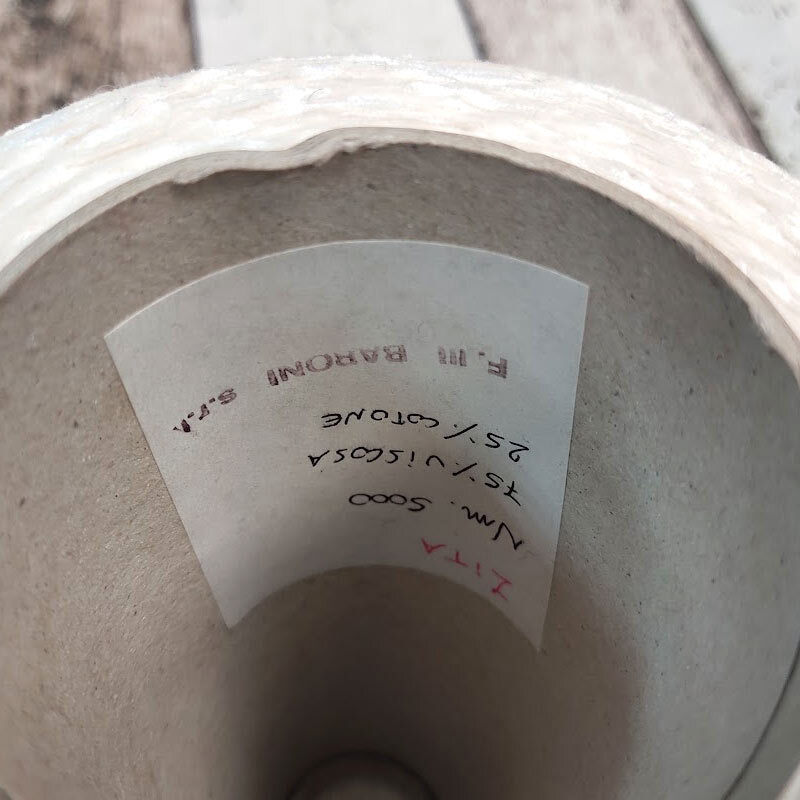 Nm. 5000
75% VISCOSA
25% COTONE
F.lli BARONI s.r.l.